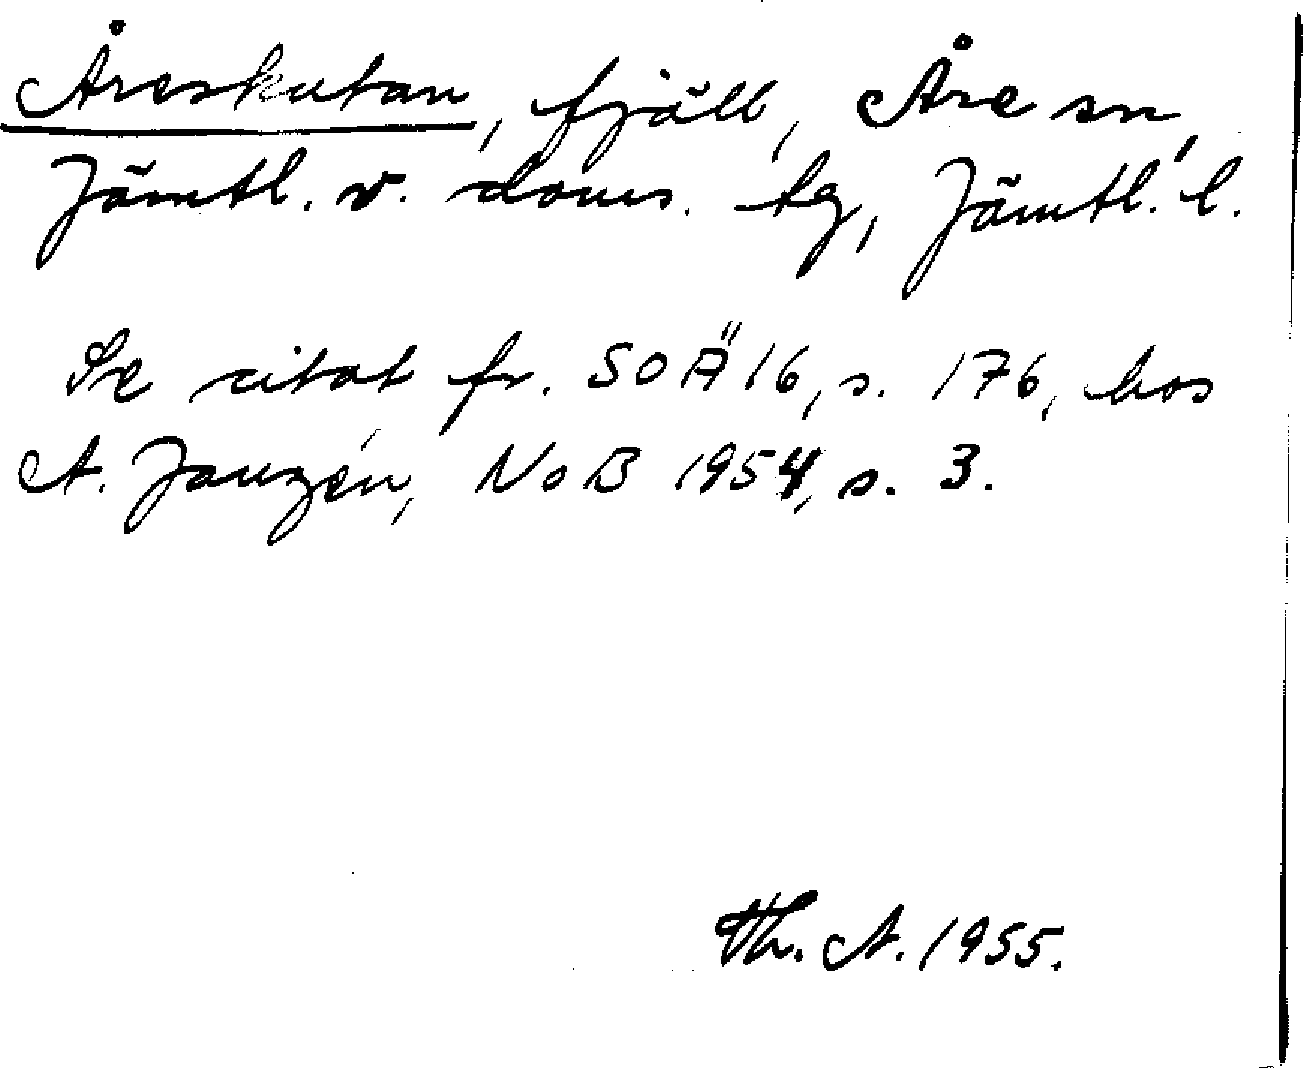 Åreskutan, fjäll, Åre sn,
Jämtl. v. doms. tg, Jämtl. l.
Se citat fr. SOÄ 16, s. 176, hos
A. Janzén, NoB 1954, s. 3.
Th. A. 1955.